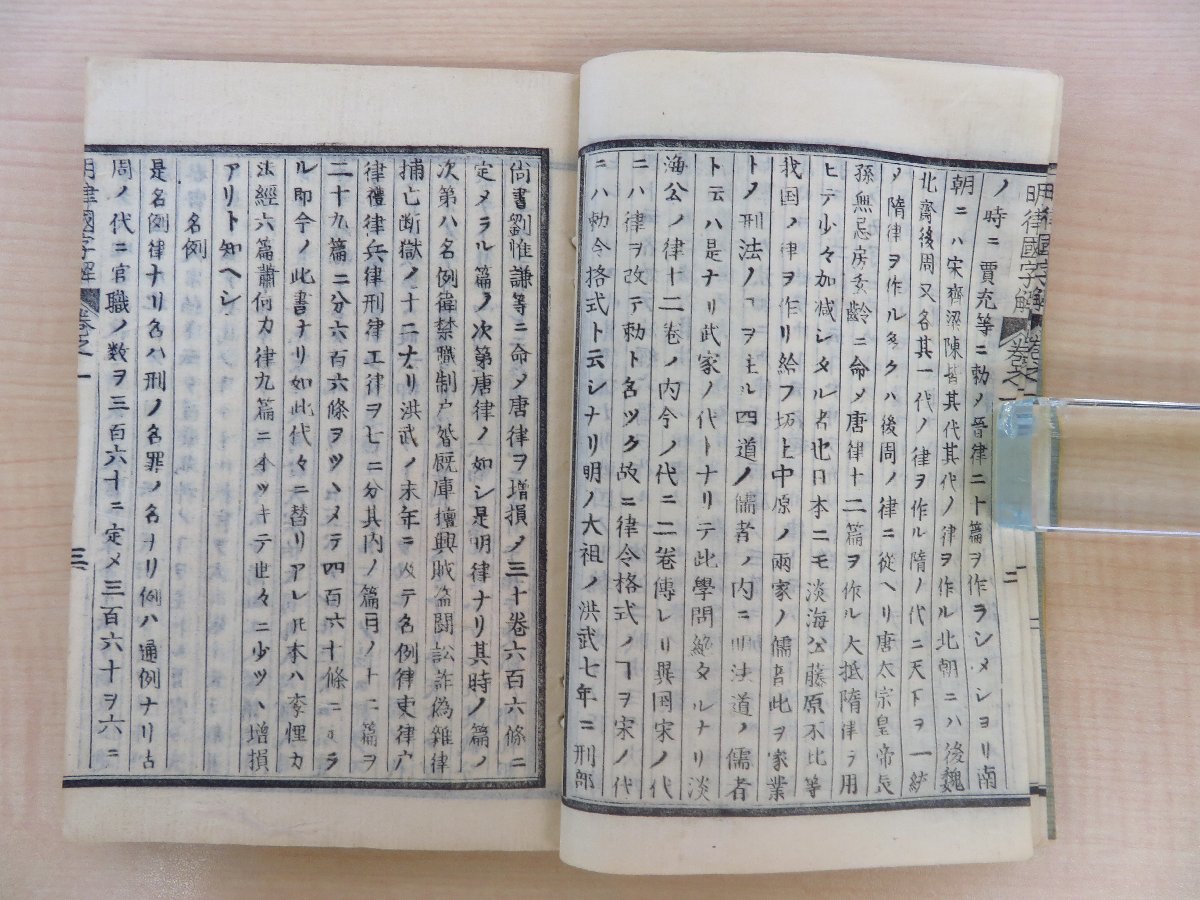 明律國字解 卷之一 二
ノ時ニ賈充等ニ勅メ晉律二十篇ヲ作ラシメシヨリ南
朝ニハ宋齊梁陳皆其代其代ノ律ヲ作ル北朝ニハ後魏
北齋後周又各其一代ノ律ヲ作ル隋ノ代ニ天下ヲ一統
ノ隋律ヲ作ル多クハ後周ノ律ニ從ヘリ唐太宗皇帝長
孫無忌房玄齡ニ命メ唐律十二篇ヲ作ル大抵隋律ヲ用
ヒテ少々加減シタル者也日本ニモ淡海公藤原不比等
我国ノ律ヲ作リ給フ坂上中原ノ兩家ノ儒者此ヲ家業
トメ刑法ノヿヲ主ル四道ノ儒者ノ内ニ明法道ノ儒者
ト云ハ是ナリ武家ノ代トナリテ此學問絶タルナリ淡
海公ノ律十二卷ノ内今ノ代ニ二卷傳レリ異国宋ノ代
ニハ律ヲ改テ勅ト名ツク故ニ律令格式ノヿヲ宋ノ代
ニハ勅令格式ト云シナリ明ノ大祖ノ洪武七年ニ刑部
尚書劉惟謙等ニ命メ唐律ヲ增損ノ三十卷六百六條ニ
定メラル篇ノ次第唐律ノ如シ是明律ナリ其時ノ篇ノ
次第ハ名例衛禁職制戸婚厩庫擅興賊盗闘訟詐偽雜律
捕亡断獄ノ十二ナリ洪武ノ末年ニ及テ名例律吏律戸
律禮律兵律刑律工律ヲ七ニ分其内ノ篇目ノ十二篇ヲ
二十九篇ニ分六百六條ヲツヽメテ四百六十條ニメラ
ル即今ノ此書ナリ如此代々ニ替リアレ𪜈本ハ李悝カ
法經六篇蕭何カ律九篇ニ本ツキテ世々ニ少ツヽ增損
アリト知ヘシ
名例
是名例律ナリ名ハ刑ノ名罪ノ名ナリ例ハ通例ナリ古
周ノ代ニ官職ノ数ヲ三百六十ニ定メ三百六十ヲ六ニ
明律國字解 卷之一 三